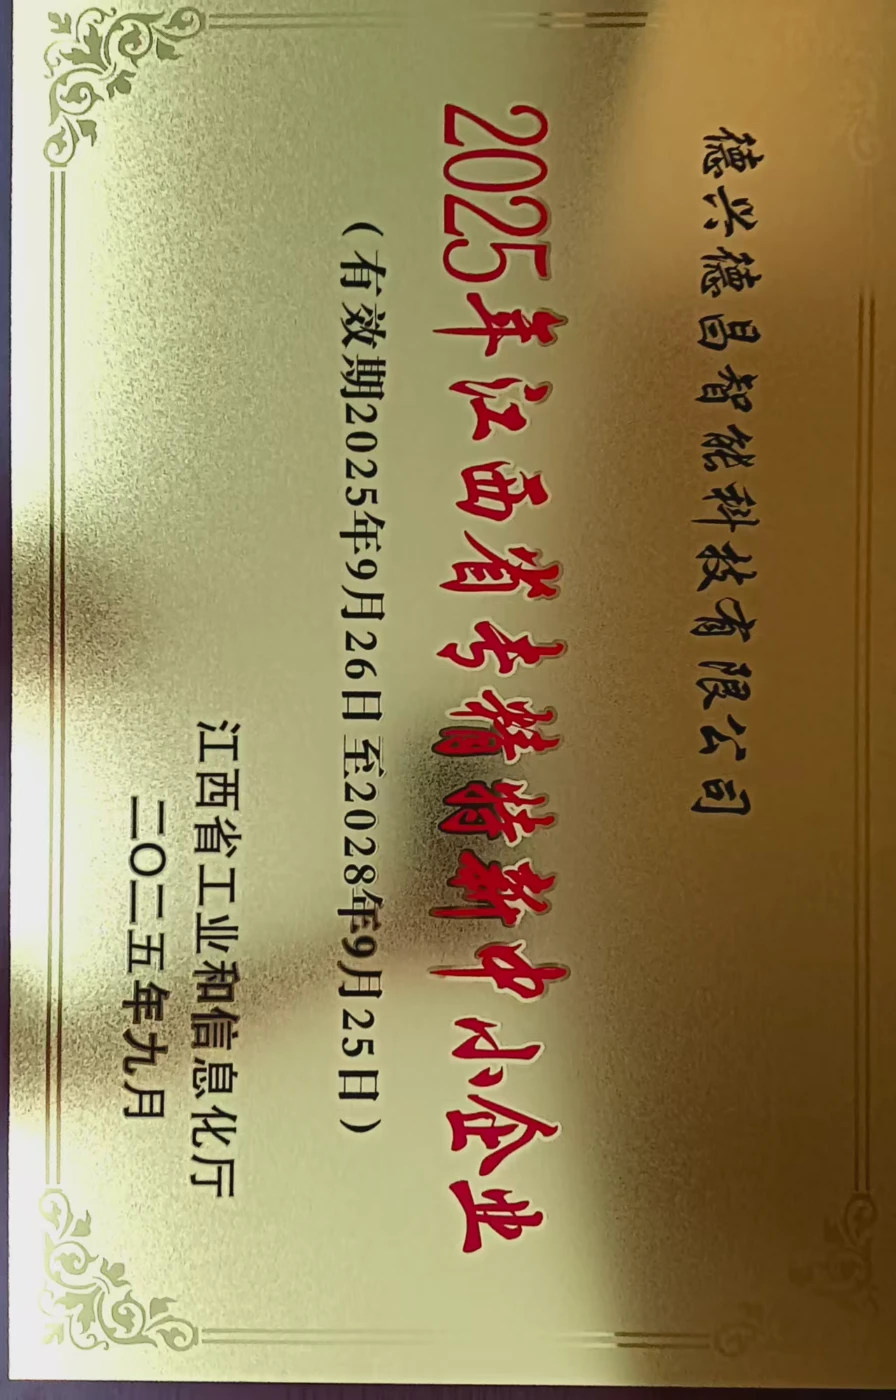 德兴德昌智能科技有限公司
2025年江西省专精特新中小企业
(有效期2025年9月26日至2028年9月25日)
江西省工业和信息化厅
二〇二五年九月